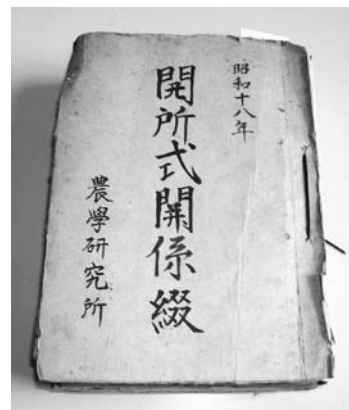 昭和十八年
開所式関係綴
農學研究所